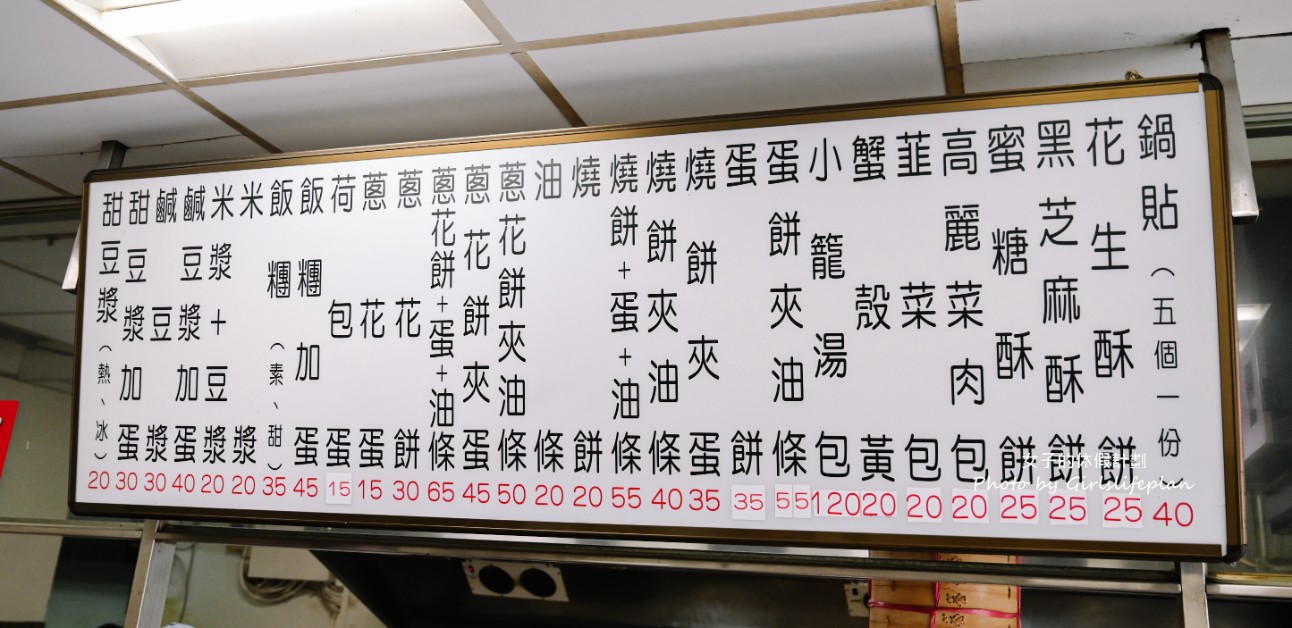 鍋貼（五個一份）40
花生酥餅25
黑芝麻酥餅25
蜜糖酥餅25
高麗菜肉包20
韮菜包20
蟹殼黃20
小籠湯包120
蛋餅夾油條55
蛋餅35
燒餅夾蛋35
燒餅夾油條40
燒餅+蛋+油條55
燒餅20
油條20
蔥花餅夾油條50
蔥花餅夾蛋45
蔥花餅+蛋+油條65
蔥花餅30
蔥花蛋15
荷包蛋15
飯糰加蛋45
飯糰（素、甜）35
米漿20
米漿+豆漿20
鹹豆漿加蛋40
鹹豆漿30
甜豆漿加蛋30
甜豆漿（熱、冰）20
女子的休假計劃
Photo by Girlslifeplan